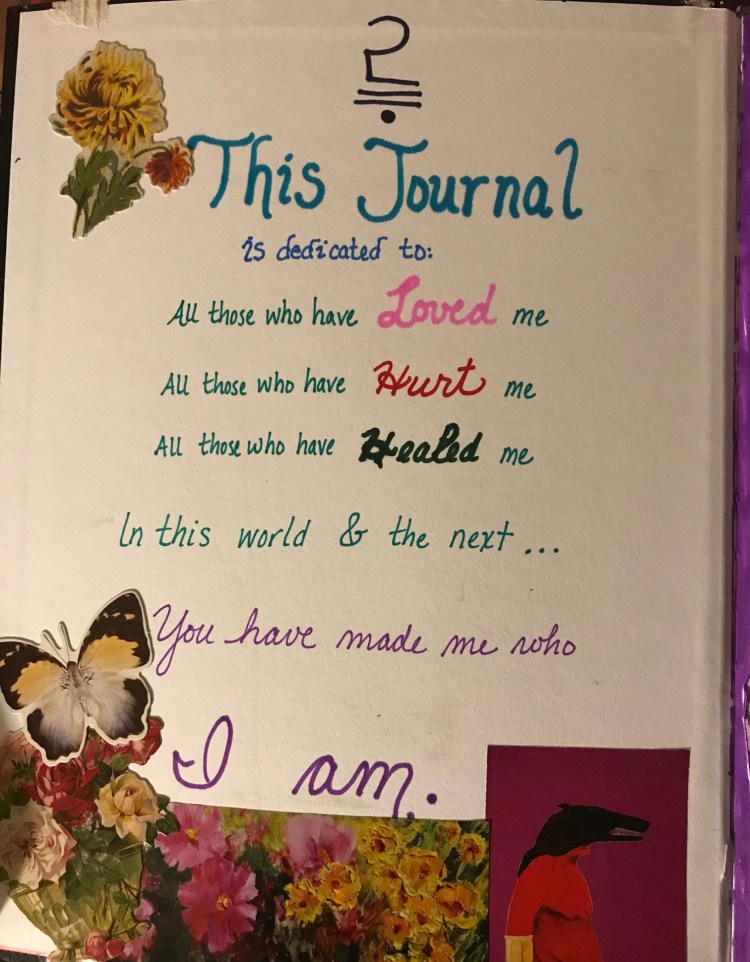 This Journal
is dedicated to:
All those who have Loved me
All those who have Hurt me
All those who have Healed me
In this world & the next...
You have made me who
I am.